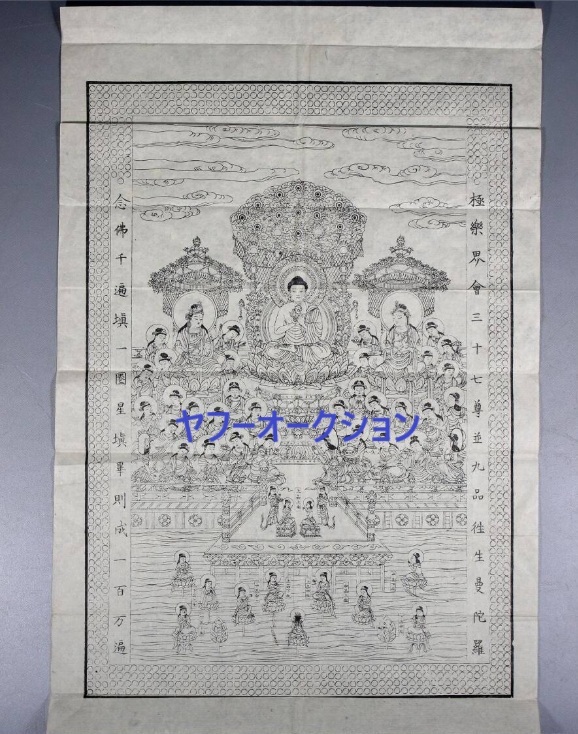 極樂界會三十七尊並九品往生曼陀羅
念佛千遍塡一圈星塡畢則成一百万遍
ヤフーオークション